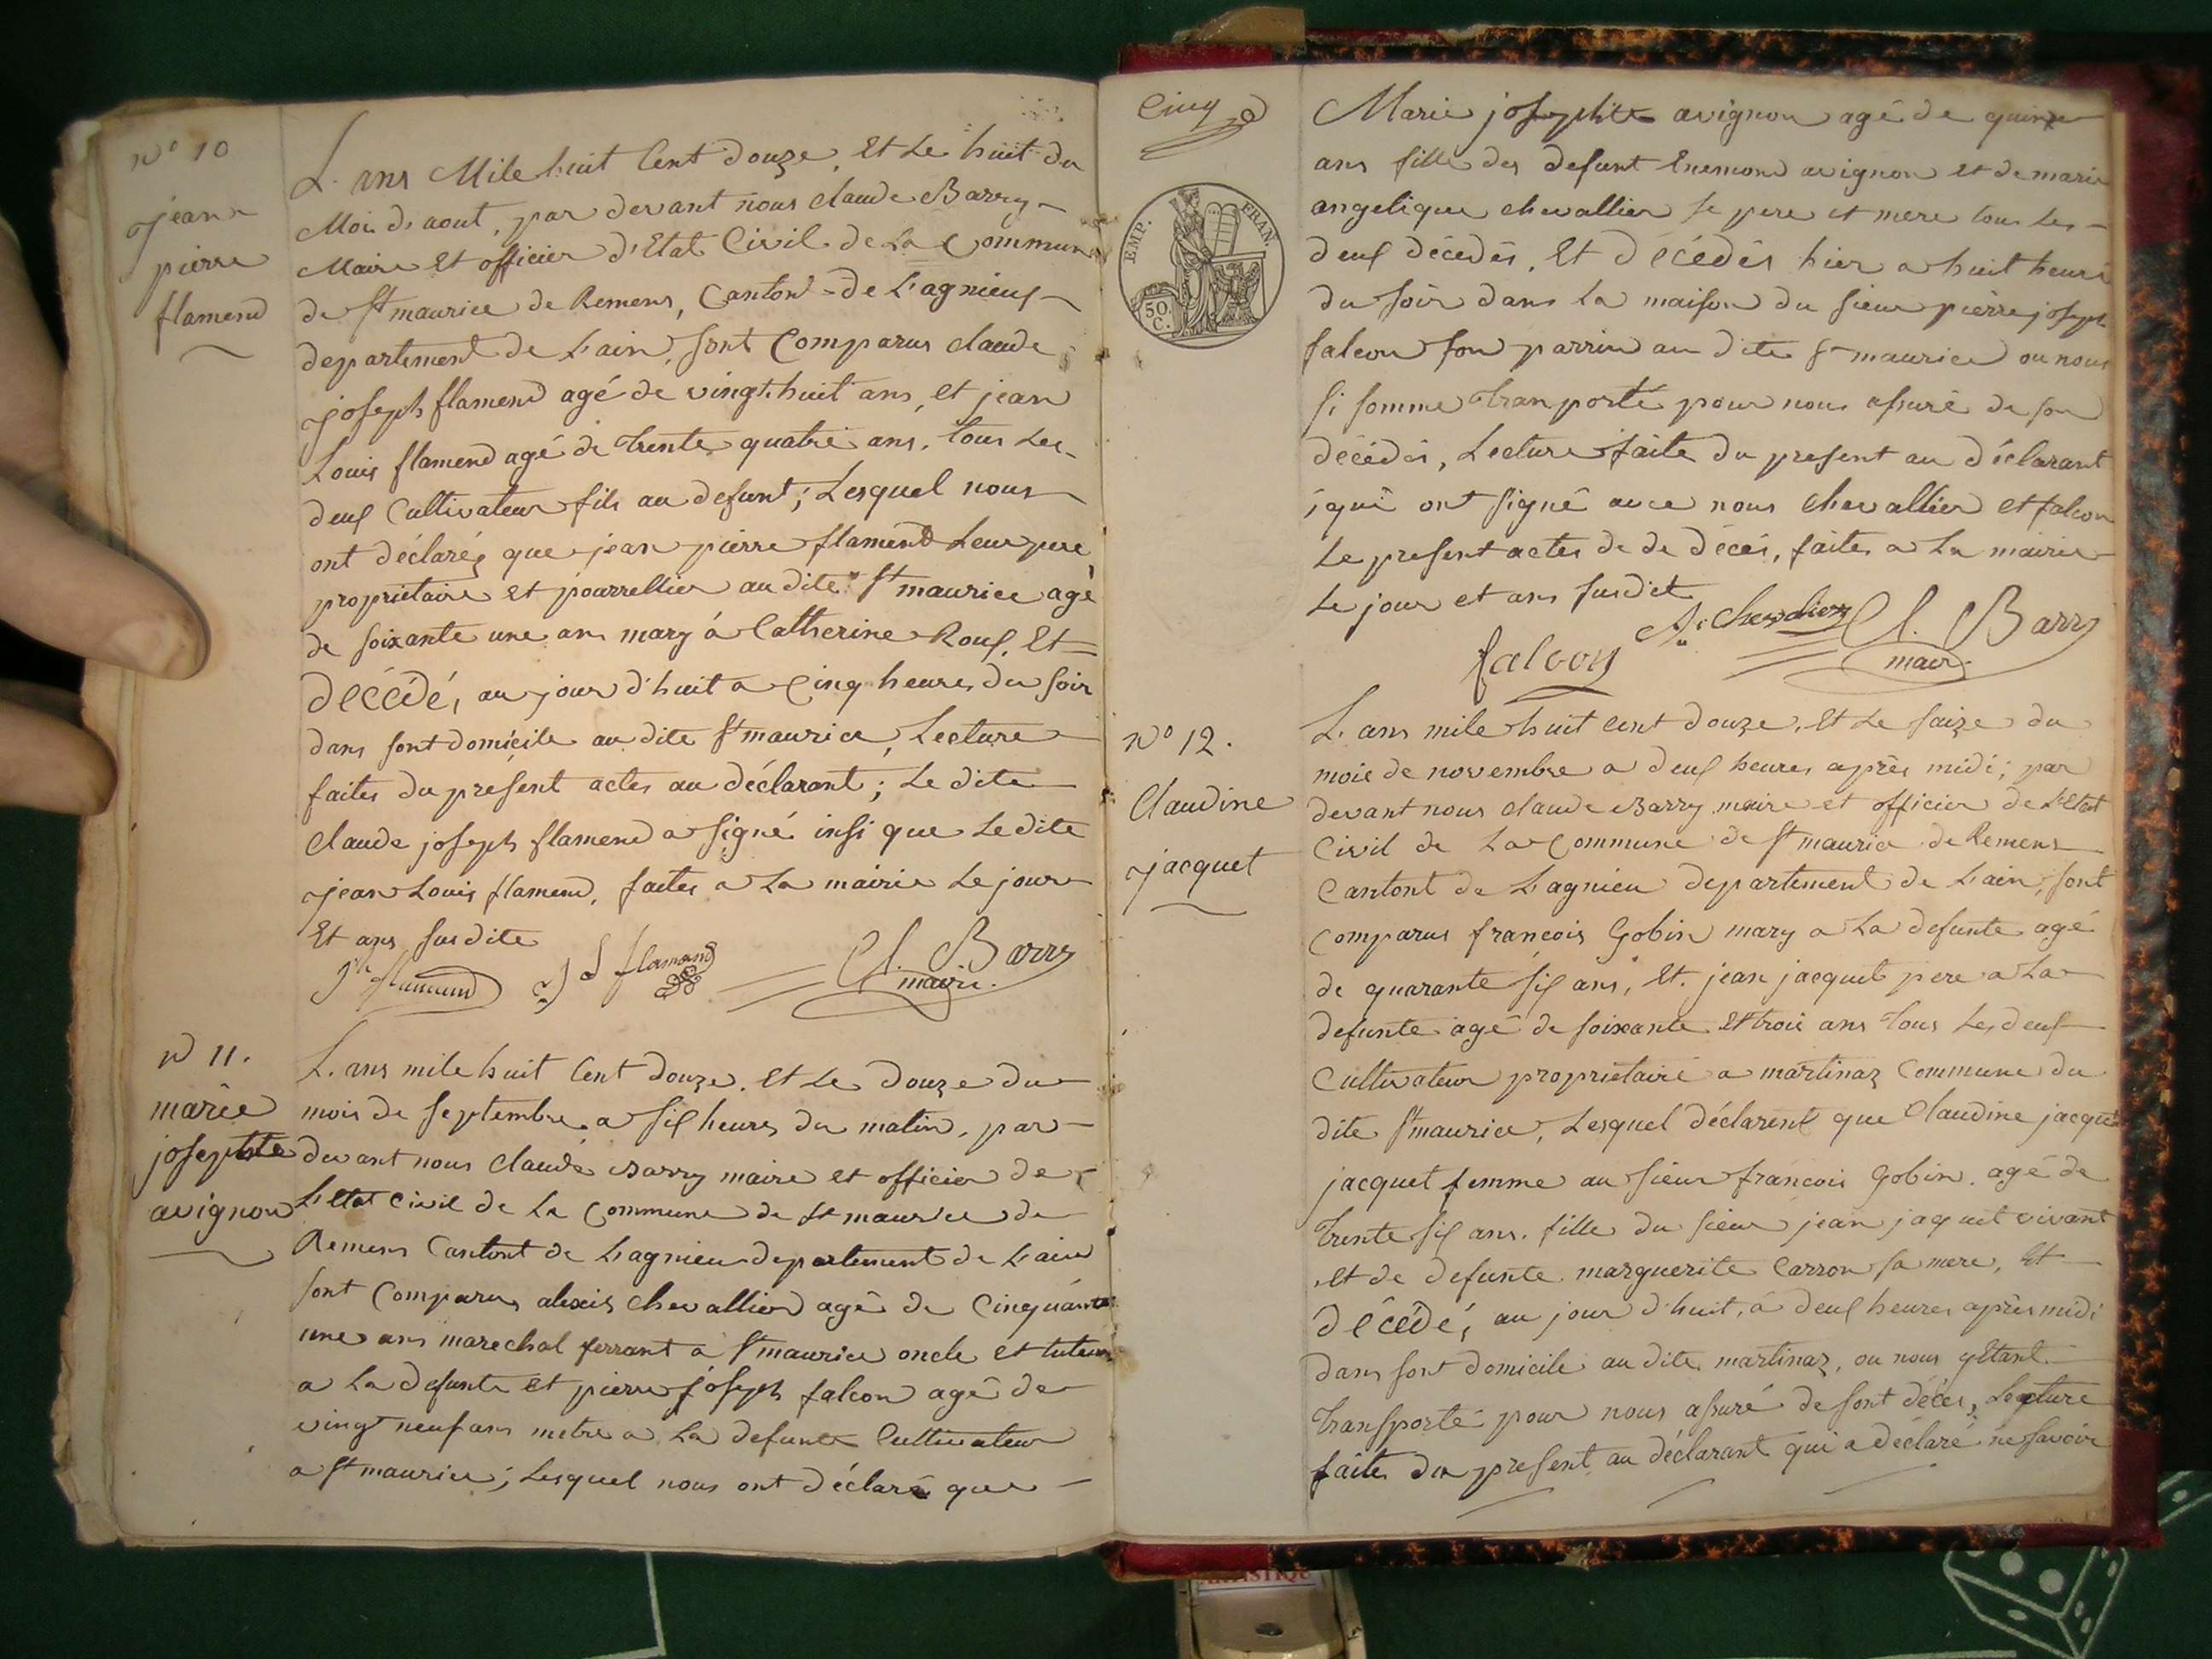 N° 10
jean
pierre
flamend
L. ans Mile huit Cent douze, Et Le huit du
Moi d'aout, par devant nous claude Barry
Maire Et officier d'Etat Civil de La Commune
de St maurice de Remens, Canton de L'agnieux
departement de L'ain, sont Comparus claude
joseph flamend agé de vingt huit ans, et jean
Louis flamend agé de trente quatre ans, tous Les
deux Cultivateur fils au defunt; Lesquel nous
ont déclaréz que jean pierre flamend Leur pere,
proprietaire et pourrellier au dite St maurice agé
de soixante une ans mary á Catherine Roux, Et
Décédé, au jour d'huit a Cinq heures du soir
dans sont domicile au dite St maurice, Lecture
faites du présent actes au déclarant; Le dite
Claude joseph flamend a signé insi que Le dite
jean Louis flamend, faites a La mairie Le jour
Et ans susdite
Jh flamend J L flamend Cl. Barry
maire.
N 11.
marie
josephte
avignon
L. ans mile huit Cent douze. Et Le douze du
mois de septembre a six heures du matin, par
devant nous claude Barry maire et officier de
L'etat Civil de La Commune de St maurice de
Remens Cantont de Lagnieu departement de L'ain
sont Comparus alexis chevallier agé de Cinquante
une ans marechal ferrant a St maurice oncle et tuteur
a La defunte et pierre joseph falcon agé de
vingt neuf ans metre a La defunte Cultivateur
a St maurice; Lesquel nous ont déclaré que
Cinq
EMP. FRAN.
50 C.
Marie josephte avignon agé de quinze
ans fille des defunt Enemond avignon et de marie
angelique chevallier se pere et mere tous Les
deux décédés, Et Décédés hier a huit heure
du soir dans La maison du sieur pierre joseph
falcon son parrin au dite St maurice ou nous
si somme tranporté pour nous assuré de son
décédés, Lecture faite du present au déclarant
iqui ont signé avec nous chevallier et falcon
Le present actes de de décés, faites a La mairie
Le jour et ans susdit
falcon A. chevalier Cl. Barry
mair.
N° 12.
Claudine
jacquet
L. ans mile huit cent douze, Et Le saize du
mois de novembre a deux heures après midi; par
devant nous claude Barry maire et officier de L'Etat
Civil de La Commune de St maurice de Remens
Cantont de Lagnieu departement de L'ain, sont
Comparus francois Gobin mary a La defunte agé
de quarante six ans, Et. jean jacquet pere a La
defunte agé de soixante Et trois ans tous Les deux
Cultivateur proprietaire a martinaz Commune du
dite St maurice, Lesquel déclarent que Claudine jacquet
jacquet femme au sieur francois Gobin. agé de
trente six ans. fille du sieur jean jaquet vivant
et de defunte marguerite Carron sa mere, Et
décédé, au jour d'huit, á deux heures après midi
dans sont domicile au dite martinaz, ou nous y Etant
transporté pour nous assuré de sont décés, Lecture
faites du present au déclarant qui a déclaré ne savoir
ARTISTIQUE